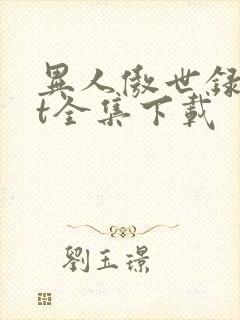 異人傲世録
t全集下載
劉玉璟